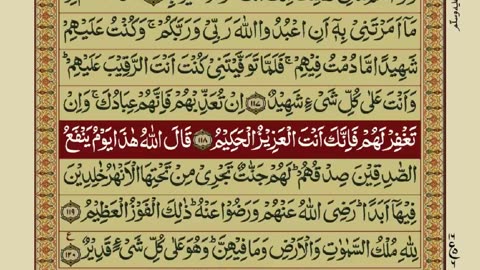 مَاۤ اَمَرْتَنِیْ بِهٖۤ اَنِ اعْبُدُوا اللّٰهَ رَبِّیْ وَ رَبَّكُمْ ۚ وَ كُنْتُ عَلَیْهِمْ
شَهِیْدًا مَّا دُمْتُ فِیْهِمْ ۚ فَلَمَّا تَوَفَّیْتَنِیْ كُنْتَ اَنْتَ الرَّقِیْبَ عَلَیْهِمْ ؕ
وَ اَنْتَ عَلٰی كُلِّ شَیْءٍ شَهِیْدٌ ﴿۱۱۷﴾ اِنْ تُعَذِّبْهُمْ فَاِنَّهُمْ عِبَادُكَ ۚ وَ اِنْ
تَغْفِرْ لَهُمْ فَاِنَّكَ اَنْتَ الْعَزِیْزُ الْحَكِیْمُ ﴿۱۱۸﴾ قَالَ اللّٰهُ هٰذَا یَوْمُ یَنْفَعُ
الصّٰدِقِیْنَ صِدْقُهُمْ ؕ لَهُمْ جَنّٰتٌ تَجْرِیْ مِنْ تَحْتِهَا الْاَنْهٰرُ خٰلِدِیْنَ
فِیْهَاۤ اَبَدًا ؕ رَضِیَ اللّٰهُ عَنْهُمْ وَ رَضُوْا عَنْهُ ؕ ذٰلِكَ الْفَوْزُ الْعَظِیْمُ ﴿۱۱۹﴾
لِلّٰهِ مُلْكُ السَّمٰوٰتِ وَ الْاَرْضِ وَ مَا فِیْهِنَّ ؕ وَ هُوَ عَلٰی كُلِّ شَیْءٍ قَدِیْرٌ ﴿۱۲۰﴾